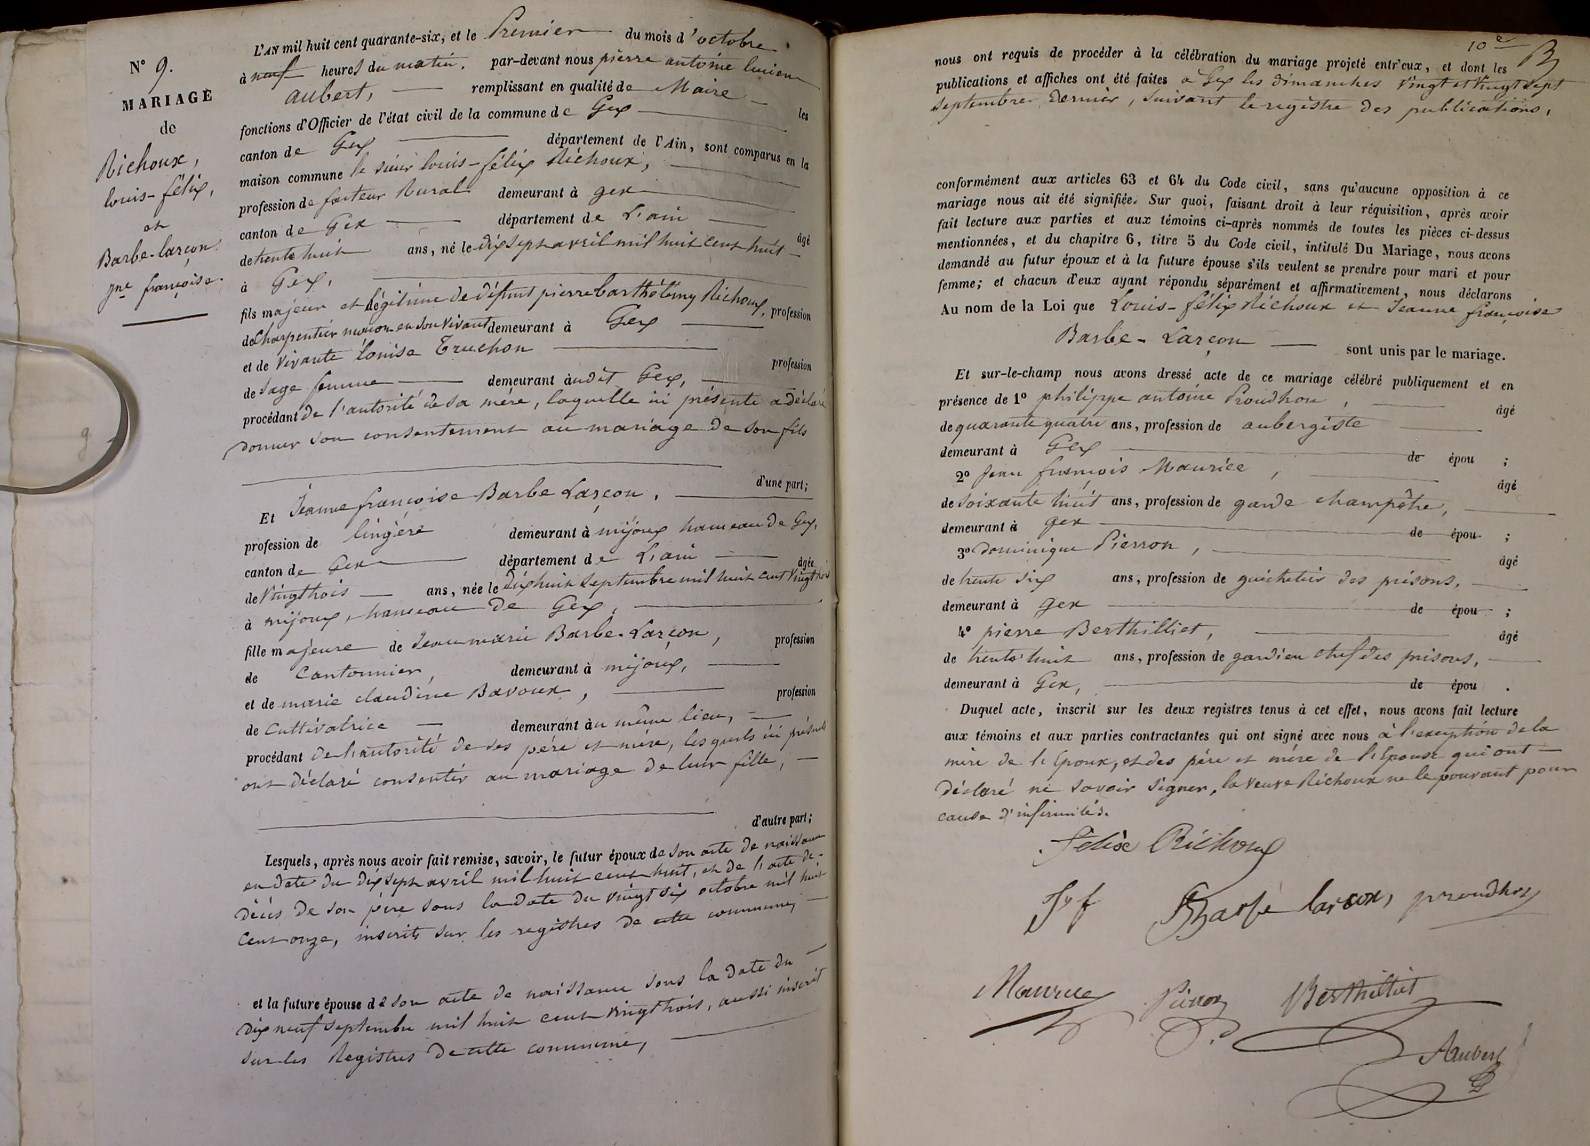 N° 9.
MARIAGE
de
Richoux,
louis-félix,
et
Barbe-larçon
jne françoise.
L'AN mil huit cent quarante-six, et le Premier du mois d'octobre
à neuf heures du matin, par-devant nous pierre antoine lucien
aubert, remplissant en qualité de Maire les
fonctions d'Officier de l'état civil de la commune de Gex
canton de Gex département de l'Ain, sont comparus en la
maison commune le sieur louis-félix Richoux,
profession de facteur Rural demeurant à gex
canton de Gex département de L'ain âgé
de trente huit ans, né le dix sept avril mil huit cent huit
à Gex,
fils majeur et légitime de défunt pierre barthélemy Richoux, profession
de Charpentier maçon en son vivant demeurant à Gex
et de vivante Louise Truchon profession
de Sage femme demeurant à udit Gex,
procédant de l'autorité de sa mère, laquelle ici présente a déclaré
donner son consentement au mariage de son fils
d'une part;
Et Jeanne françoise Barbe Larçon,
profession de lingère demeurant à mijoux hameau de Gex,
canton de Gex département de L'ain âgée
de vingt trois ans, née le dix huit septembre mil huit cent vingt trois
à mijoux, hameau de Gex,
fille majeure de Jean marie Barbe-Larçon, profession
de Cantonnier, demeurant à mijoux,
et de marie claudine Bavoux, profession
de Cultivatrice demeurant à u même lieu,
procédant de l'autorité de ses père et mère, lesquels ici présents
ont déclaré consentir au mariage de leur fille,
d'autre part;
Lesquels, après nous avoir fait remise, savoir, le futur époux de son acte de naissance
en date du dix sept avril mil huit cent huit, et de l'acte de
décès de son père sous la date du vingt six octobre mil huit
cent onze, inscrits sur les registres de cette commune,
et la future épouse de son acte de naissance sous la date du
dix neuf septembre mil huit cent vingt trois, aussi inscrit
sur les Registres de cette commune,
10e B
nous ont requis de procéder à la célébration du mariage projeté entr'eux, et dont les
publications et affiches ont été faites à Gex les dimanches vingt et vingt sept
septembre dernier, suivant le registre des publications,
conformément aux articles 63 et 64 du Code civil, sans qu'aucune opposition à ce
mariage nous ait été signifiée. Sur quoi, faisant droit à leur réquisition, après avoir
fait lecture aux parties et aux témoins ci-après nommés de toutes les pièces ci-dessus
mentionnées, et du chapitre 6, titre 5 du Code civil, intitulé Du Mariage, nous avons
demandé au futur époux et à la future épouse s'ils veulent se prendre pour mari et pour
femme; et chacun d'eux ayant répondu séparément et affirmativement, nous déclarons
Au nom de la Loi que Louis-félix Richoux et Jeanne françoise
Barbe-Larçon sont unis par le mariage.
Et sur-le-champ nous avons dressé acte de ce mariage célébré publiquement et en
présence de 1° philippe antoine Proudhon, âgé
de quarante quatre ans, profession de aubergiste
demeurant à Gex de épou ;
2° Jean françois Maurice, âgé
de soixante huit ans, profession de garde champêtre,
demeurant à gex de épou ;
3° dominique Pierron, âgé
de trente six ans, profession de guichetier des prisons,
demeurant à gex de épou ;
4° pierre Berthilliet, âgé
de trente huit ans, profession de gardien chef des prisons,
demeurant à Gex, de épou .
Duquel acte, inscrit sur les deux registres tenus à cet effet, nous avons fait lecture
aux témoins et aux parties contractantes qui ont signé avec nous à l'exception de la
mère de l'Epoux, et des père et mère de l'Epouse qui ont
déclaré ne savoir signer, la veuve Richoux ne le pouvant pour
cause d'infirmités.
Félix Richoux
J f Barbe larcon, proudhon
Maurice Pierron Berthilliet
Aubert